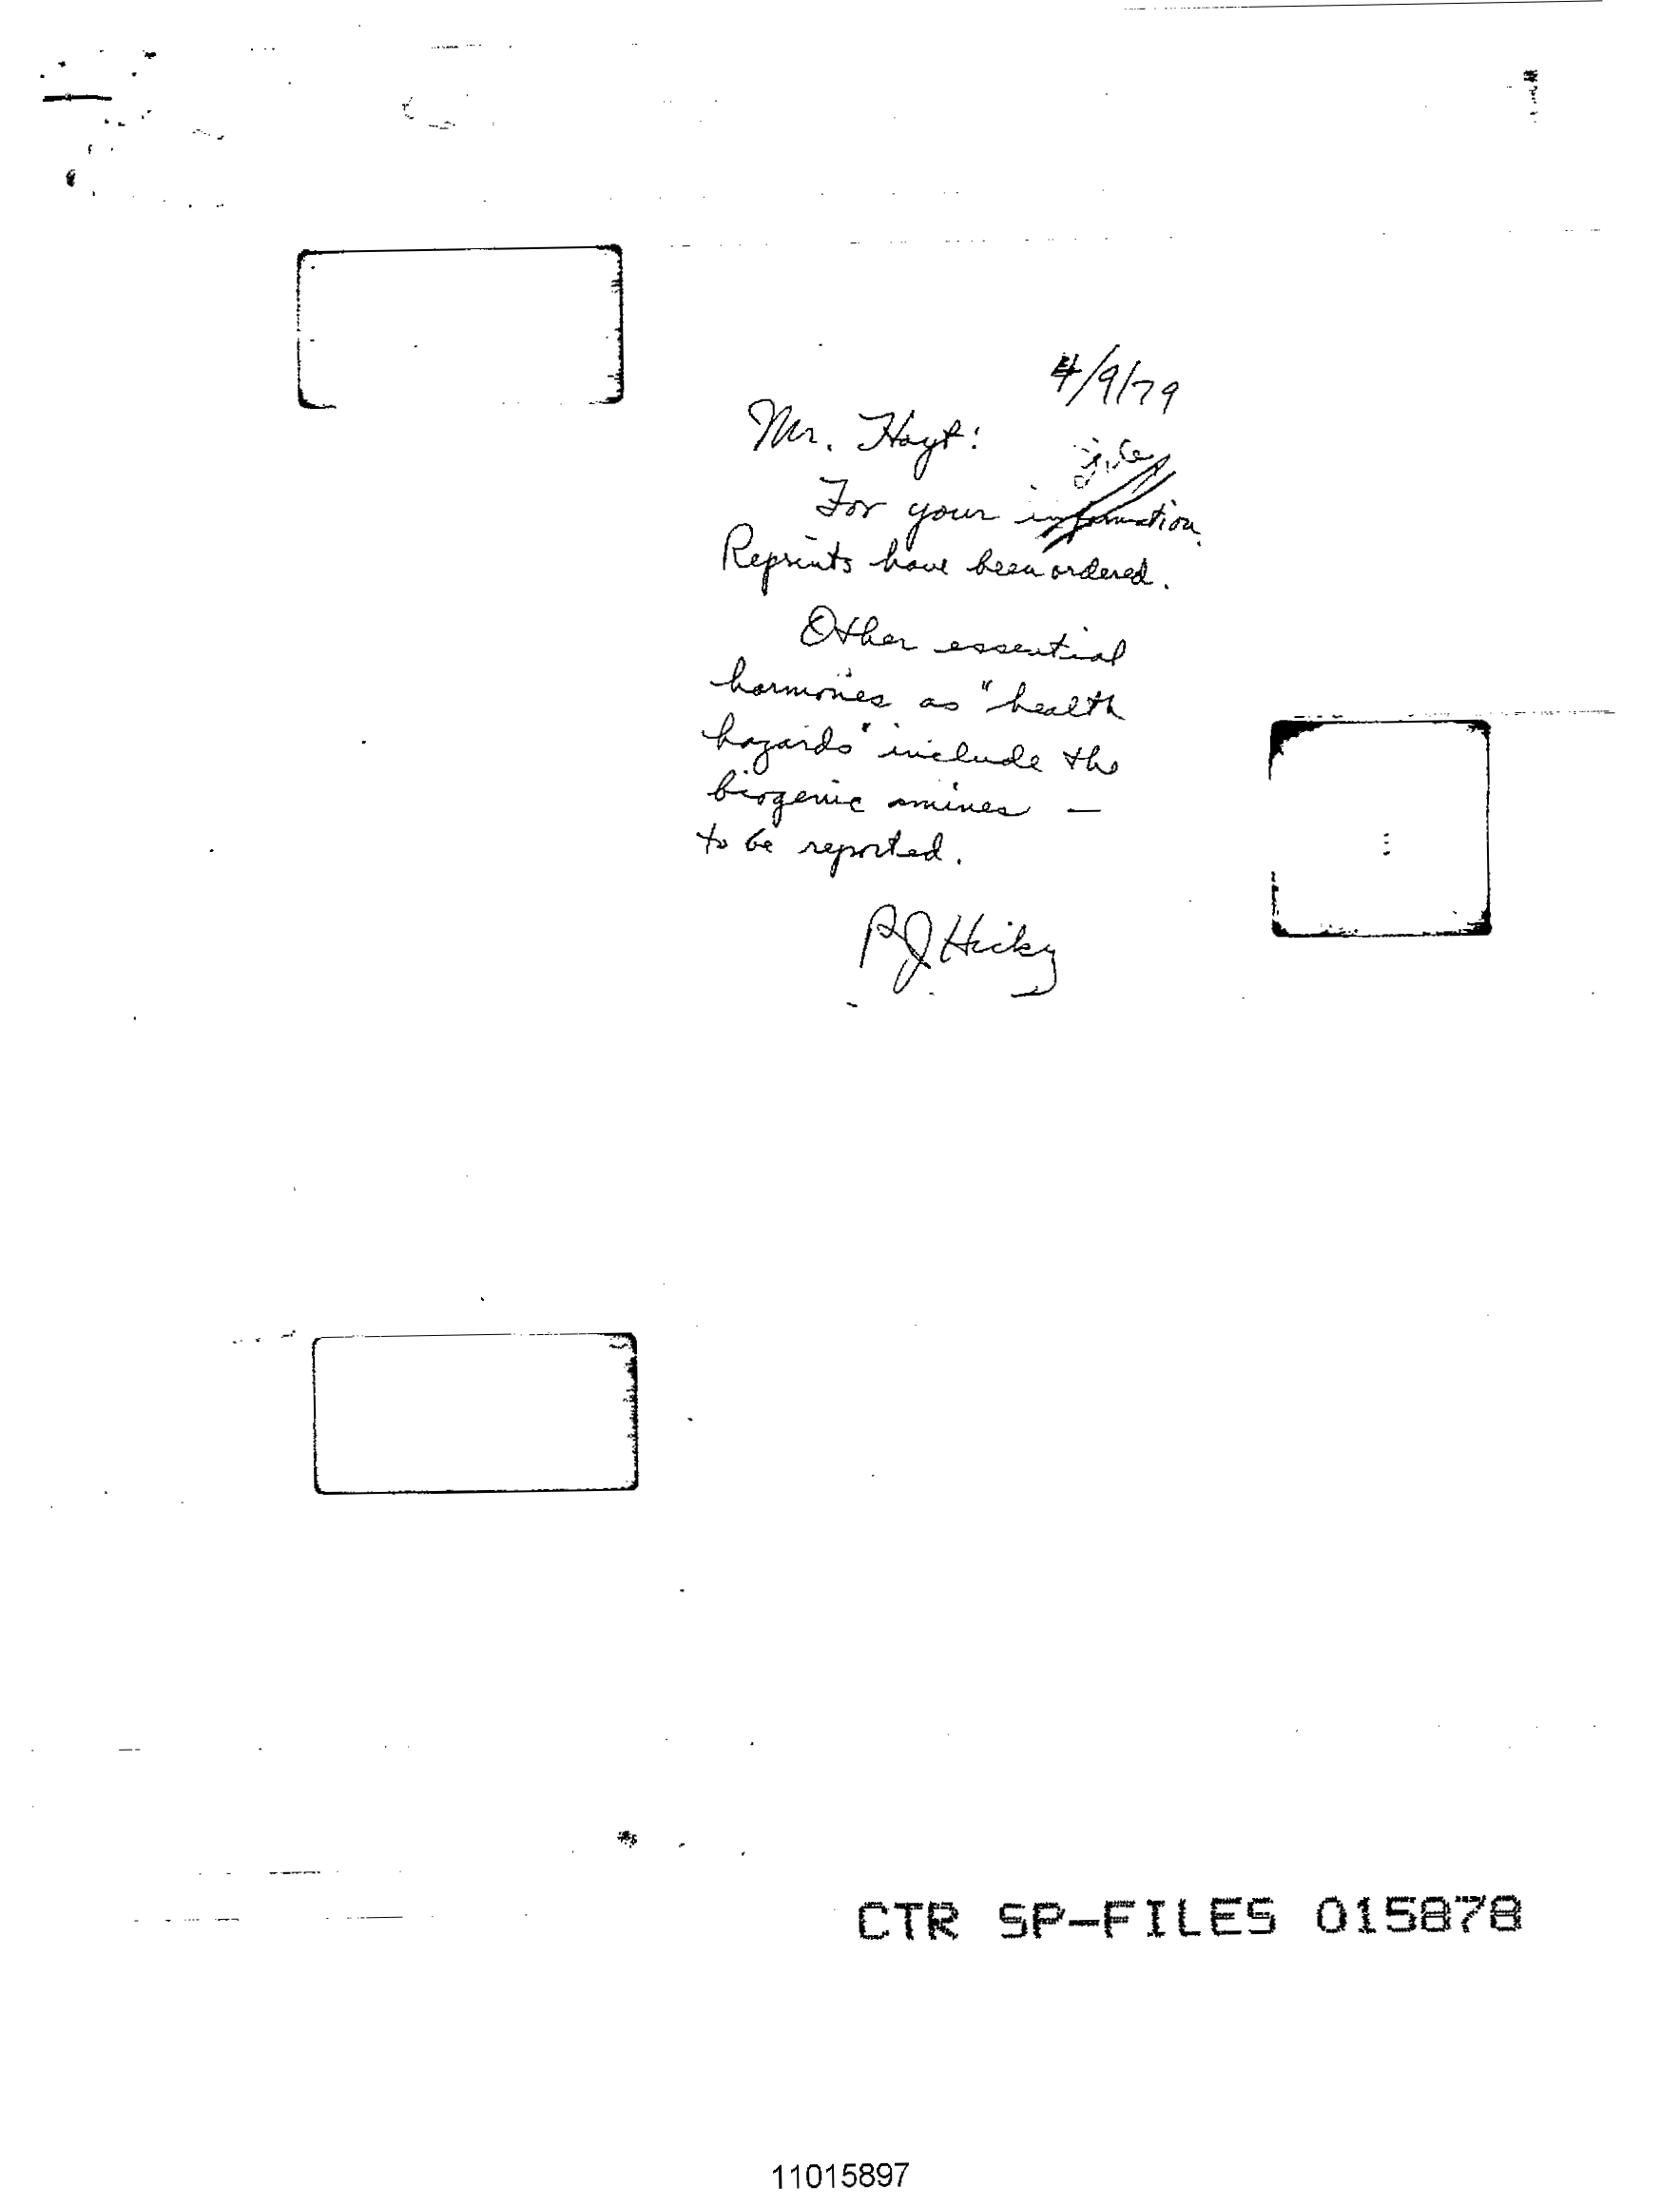 4/9/79
Mr. Hoyt:
For your information.
Reprints have been ordered.
Other essential
hormones as "health
hazards" include the
biogenic amines —
to be reported.
RJ Hickey
CTR SP-FILES 015878
11015897